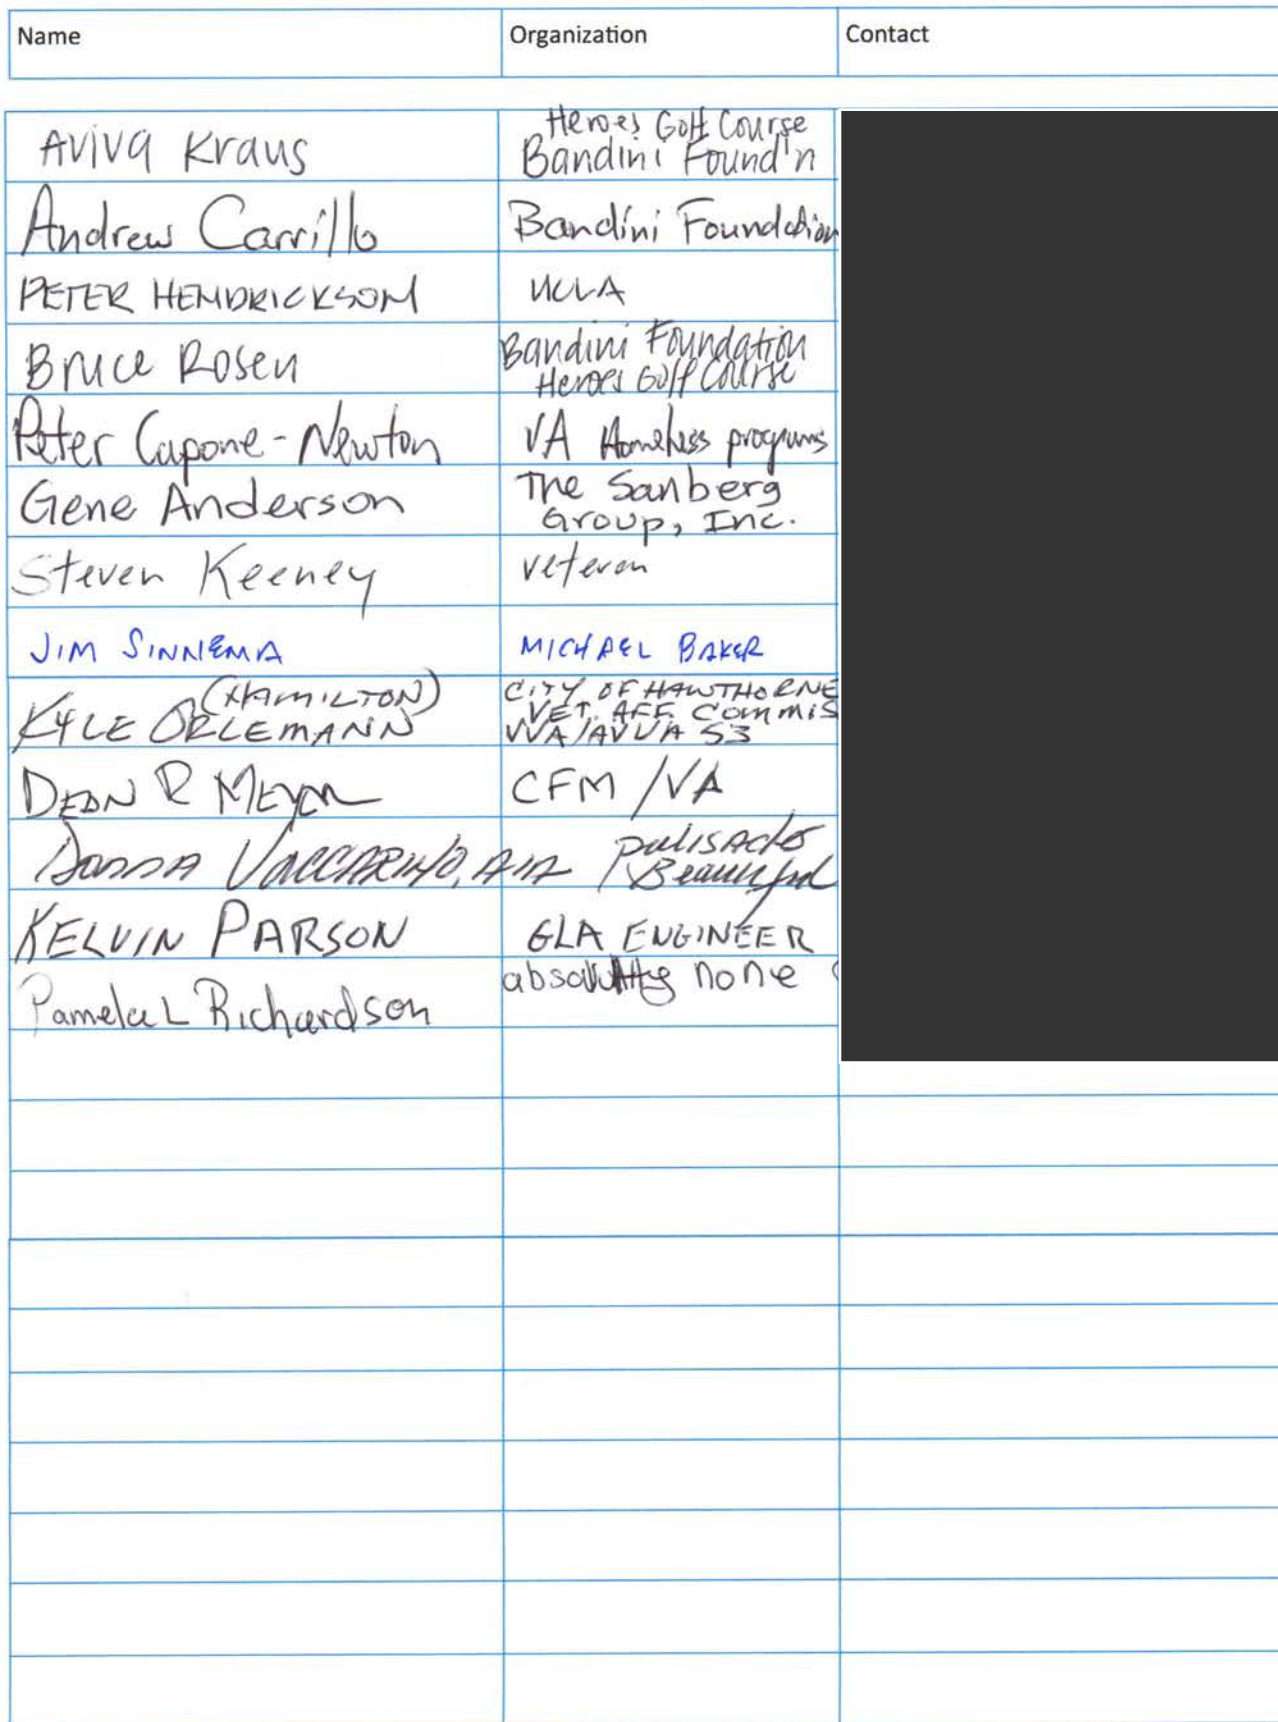 Name Organization Contact
Aviva Kraus Heroes Golf Course
Bandini Found'n
Andrew Carrillo Bandini Foundation
PETER HENDRICKSON UCLA
Bruce Rosen Bandini Foundation
Heroes Golf Course
Peter Capone-Newton VA Homeless programs
Gene Anderson The Sanberg
Group, Inc.
Steven Keeney veteran
JIM SINNEMA MICHAEL BAKER
(HAMILTON) CITY OF HAWTHORNE
KYLE ORLEMANN VET. AFF. COMMIS
VVA/AVVA S3
DEAN R MEYER CFM/VA
VACCARINO, AIA Palisades
Beautiful
KELVIN PARSON GLA ENGINEER
Pamela L Richardson absolutely none